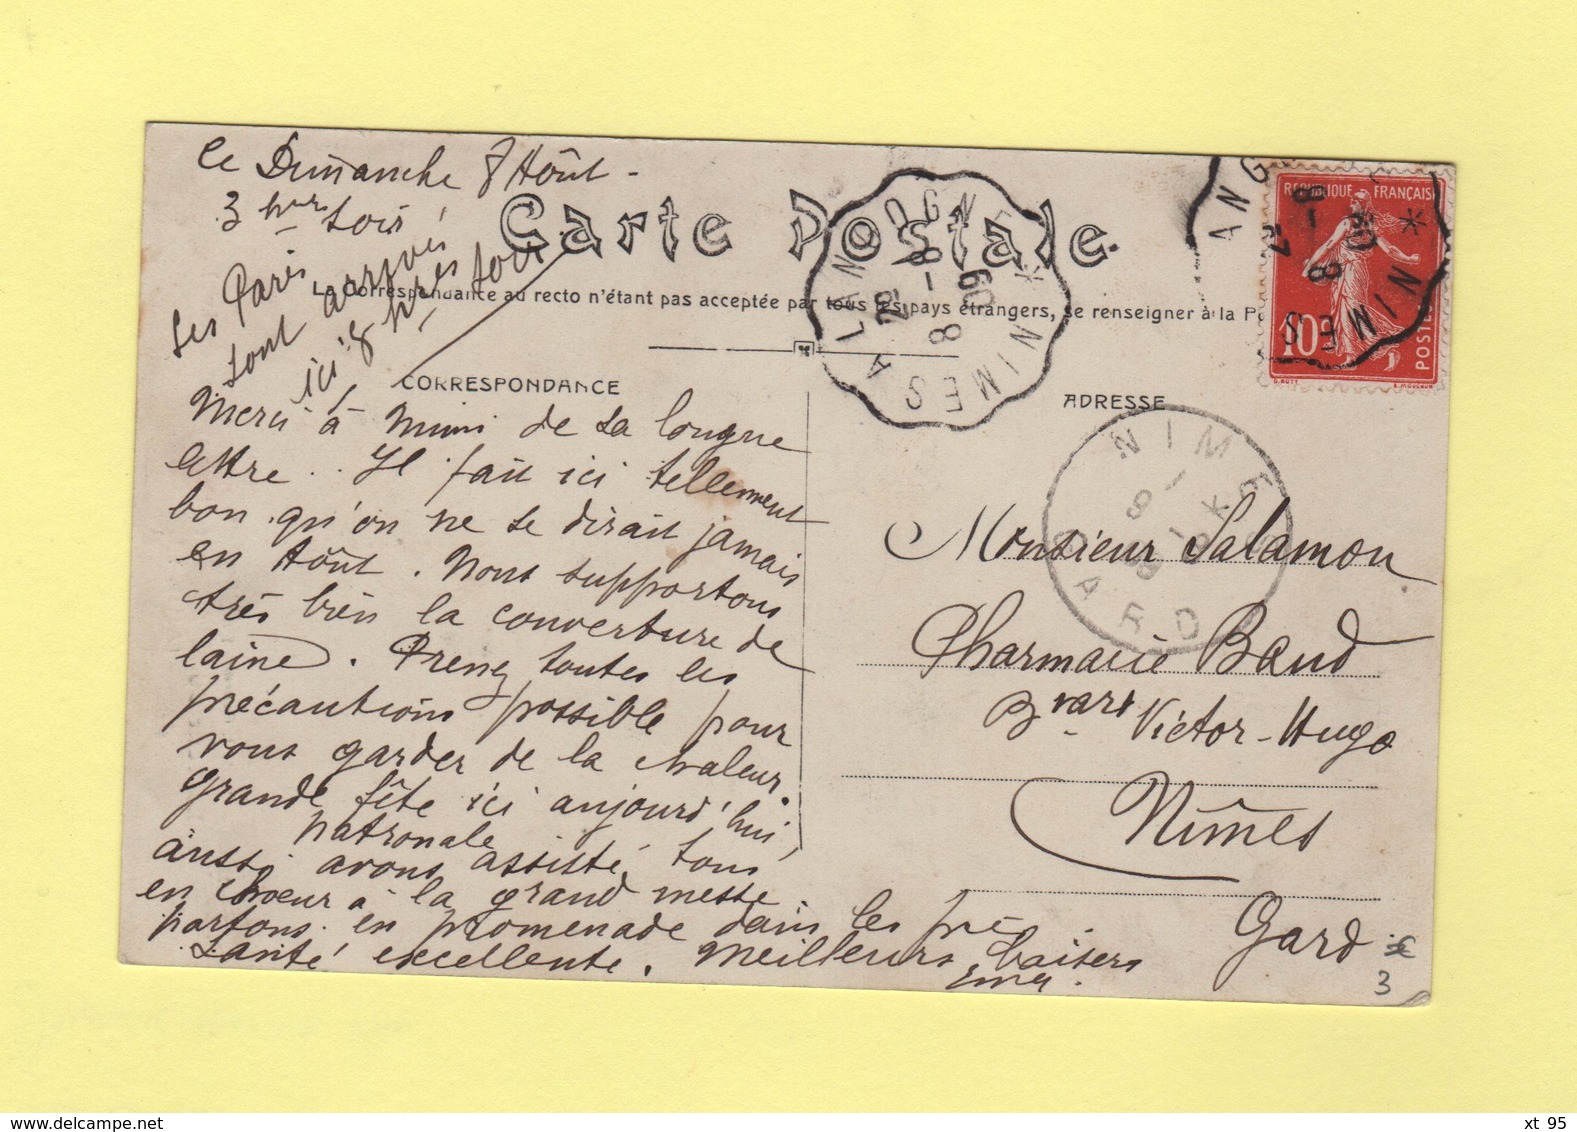 Ce Dimanche 8 Hôut -
3 hres soir
Les Paris
sont arrivés
ici 8 hres soir
Carte Postale
La Correspondance au recto n'étant pas acceptée par tous les pays étrangers, se renseigner à la P
CORRESPONDANCE
Merci à Mimi de sa longue
lettre .. Il fait ici tellement
bon qu'on ne se dirait jamais
en Hôut. Nous supportons
très bien la couverture de
laine. Prenez toutes les
précautions possible pour
vous garder de la chaleur.
Grande fête ici aujourd'hui,
Patronale
aussi avons assisté tous
en choeur à la grand messe
partons en promenade dans les prés
Santé excellente. Meilleurs baisers
ADRESSE
Monsieur Salamon
Pharmacie Baud
Bvard Victor-Hugo
Nîmes
Gard
3
RÉPUBLIQUE FRANÇAISE
10c
POSTES
NIMES A LANGOGNE
8 - 8
09
NIMES
ANG
8 - 8
09
NIMES
GARD
xt 95